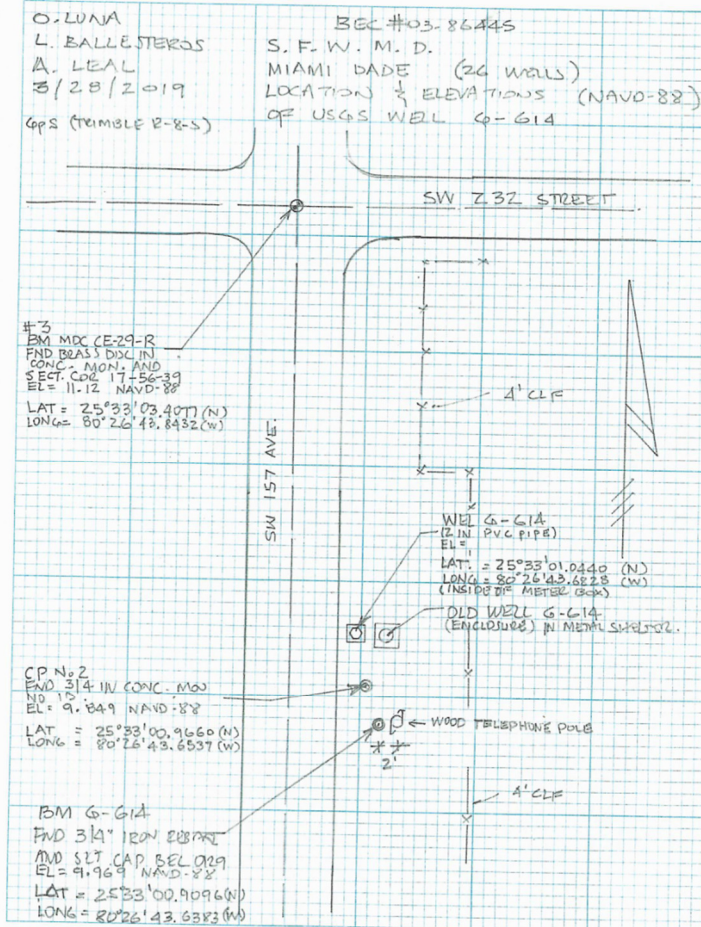 O. LUNA
L. BALLESTEROS
A. LEAL
3/28/2019
GPS (TRIMBLE R-8-S)
BEC #03-86445
S. F. W. M. D.
MIAMI DADE (26 WELLS)
LOCATION & ELEVATIONS (NAVD-88)
OF USGS WELL G-614
SW 232 STREET
#3
BM MDC CE-29-R
FND BRASS DISC IN
CONC. MON. AND
SECT. COR 17-56-39
EL = 11.12 NAVD-88
LAT = 25°33'03.4077 (N)
LONG = 80°26'43.8432 (W)
4' CLF
SW 157 AVE.
WEL G-614
(2 IN PVC PIPE)
EL =
LAT. = 25°33'01.0440 (N)
LONG = 80°26'43.6228 (W)
(INSIDE OF METER BOX)
OLD WELL G-614
(ENCLOSURE) IN METAL SHELTER.
CP No. 2
FND 3/4 IN CONC. MON
NO ID.
EL = 9.849 NAVD-88
LAT = 25°33'00.9660 (N)
LONG = 80°26'43.6537 (W)
WOOD TELEPHONE POLE
2'
4' CLF
BM G-614
FND 3/4" IRON REBAR
AND SET CAP BEC 029
EL = 9.969 NAVD-88
LAT = 25°33'00.9096 (N)
LONG = 80°26'43.6383 (W)